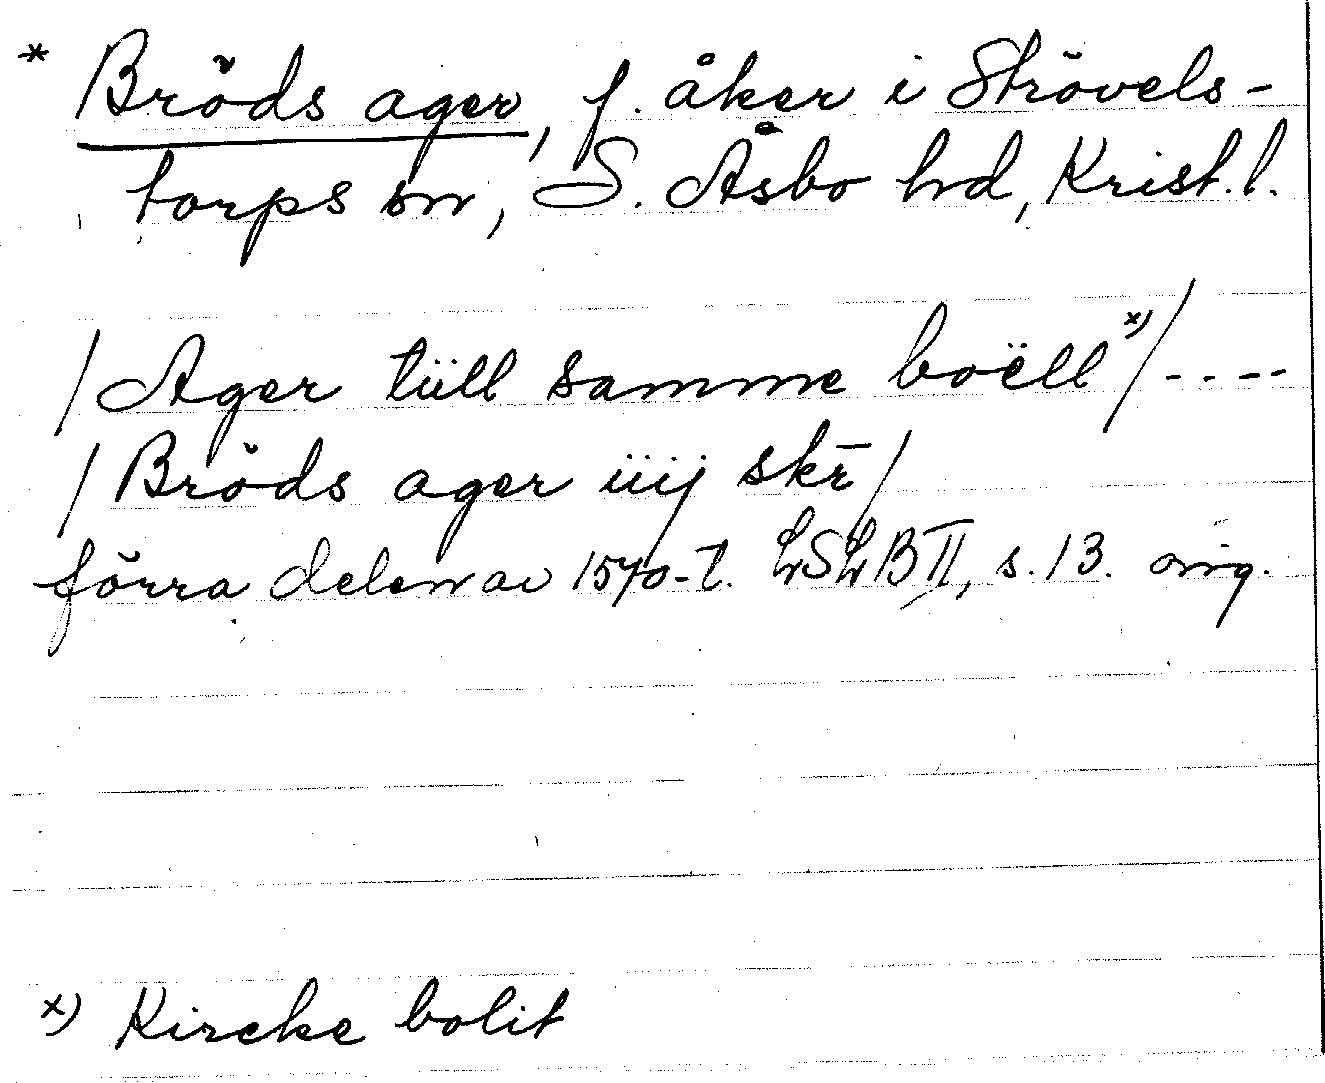 * Bröds ager, f. åker i Strövels-
torps sn, S. Åsbo hd, Krist. l.
/ Ager tüll samme boëll x) / ----
/ Bröds ager iiij skr̄ /
förra delen av 1570-t. LSLB II, s. 13. orig.
x) Kircke bolit